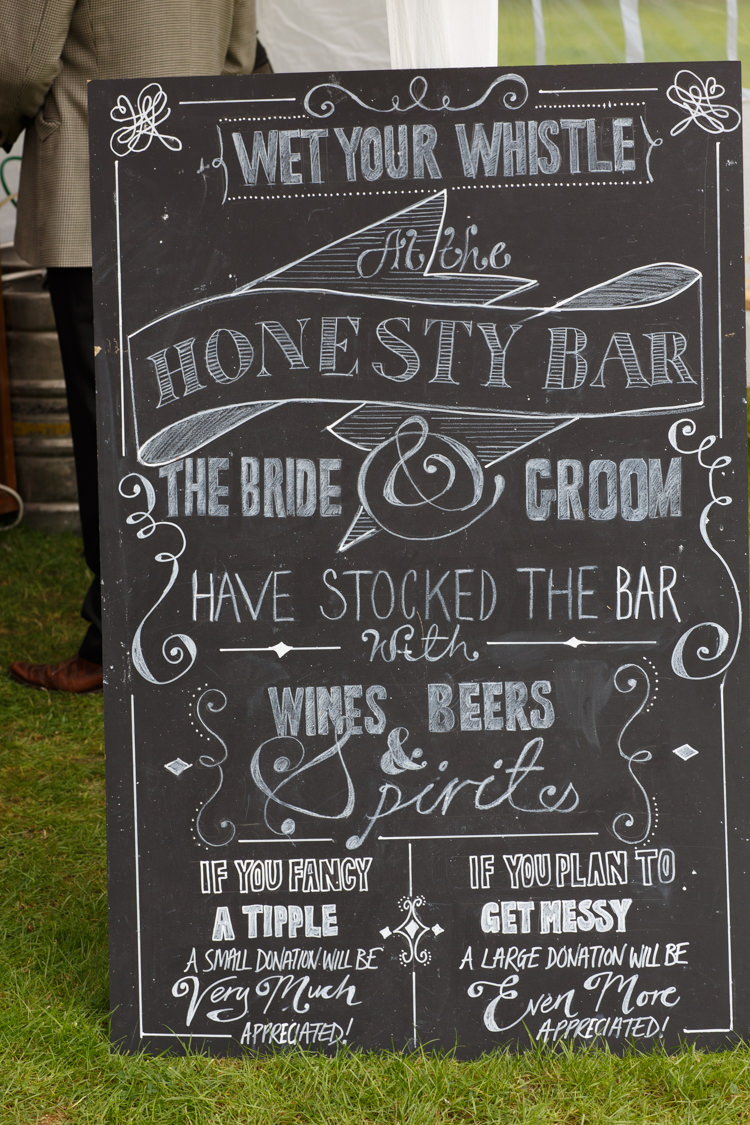 WET YOUR WHISTLE
At the
HONESTY BAR
THE BRIDE & GROOM
HAVE STOCKED THE BAR
With
WINES BEERS
& Spirits
IF YOU FANCY
A TIPPLE
A SMALL DONATION WILL BE
Very Much
APPRECIATED!
IF YOU PLAN TO
GET MESSY
A LARGE DONATION WILL BE
Even More
APPRECIATED!